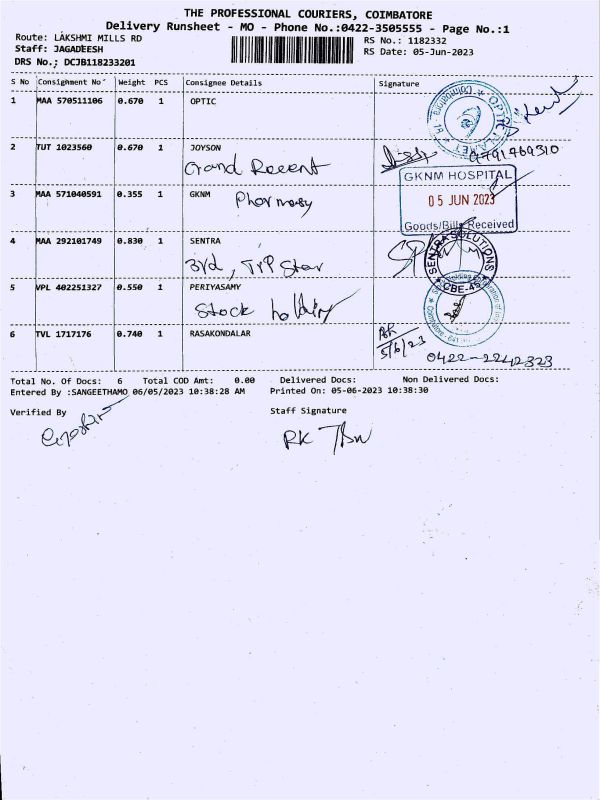 THE PROFESSIONAL COURIERS, COIMBATORE
Delivery Runsheet - MO - Phone No.:0422-3505555 - Page No.:1
Route: LAKSHMI MILLS RD
RS No.: 1182332
Staff: JAGADEESH
RS Date: 05-Jun-2023
DRS No.; DCJB118233201
S No Consignment No Weight PCS Consignee Details Signature
1 MAA 570511106 0.670 1 OPTIC
2 TUT 1023560 0.670 1 JOYSON 9791769310
Grand Recent
GKNM HOSPITAL
3 MAA 571040591 0.355 1 GKNM
Pharmacy
05 JUN 2023
Goods/Bills Received
4 MAA 292101749 0.830 1 SENTRA
SENTRA SOLUTIONS
CBE-45
3rd,
5 VPL 402251327 0.550 1 PERIYASAMY
Stock holding
6 TVL 1717176 0.740 1 RASAKONDALAR
5/6/23
0422-2242323
Total No. Of Docs: 6 Total COD Amt: 0.00 Delivered Docs: Non Delivered Docs:
Entered By :SANGEETHAMO 06/05/2023 10:38:28 AM Printed On: 05-06-2023 10:38:30
Verified By Staff Signature